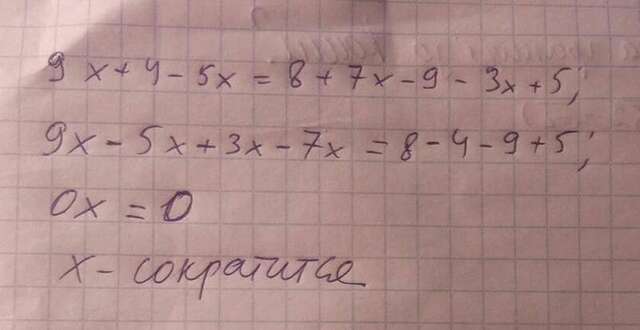 9 x + 4 - 5x = 8 + 7x - 9 - 3x + 5;
9x - 5x + 3x - 7x = 8 - 4 - 9 + 5;
0x = 0
x - сократится